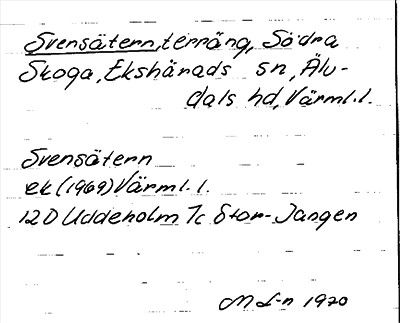 Svensätern, terräng, Södra
Skoga, Ekshärads sn, Älv-
dals hd, Värml. l.
Svensätern
ek (1969) Värml. l.
12D Uddeholm 7c Stor-Jangen
M L-n 1970